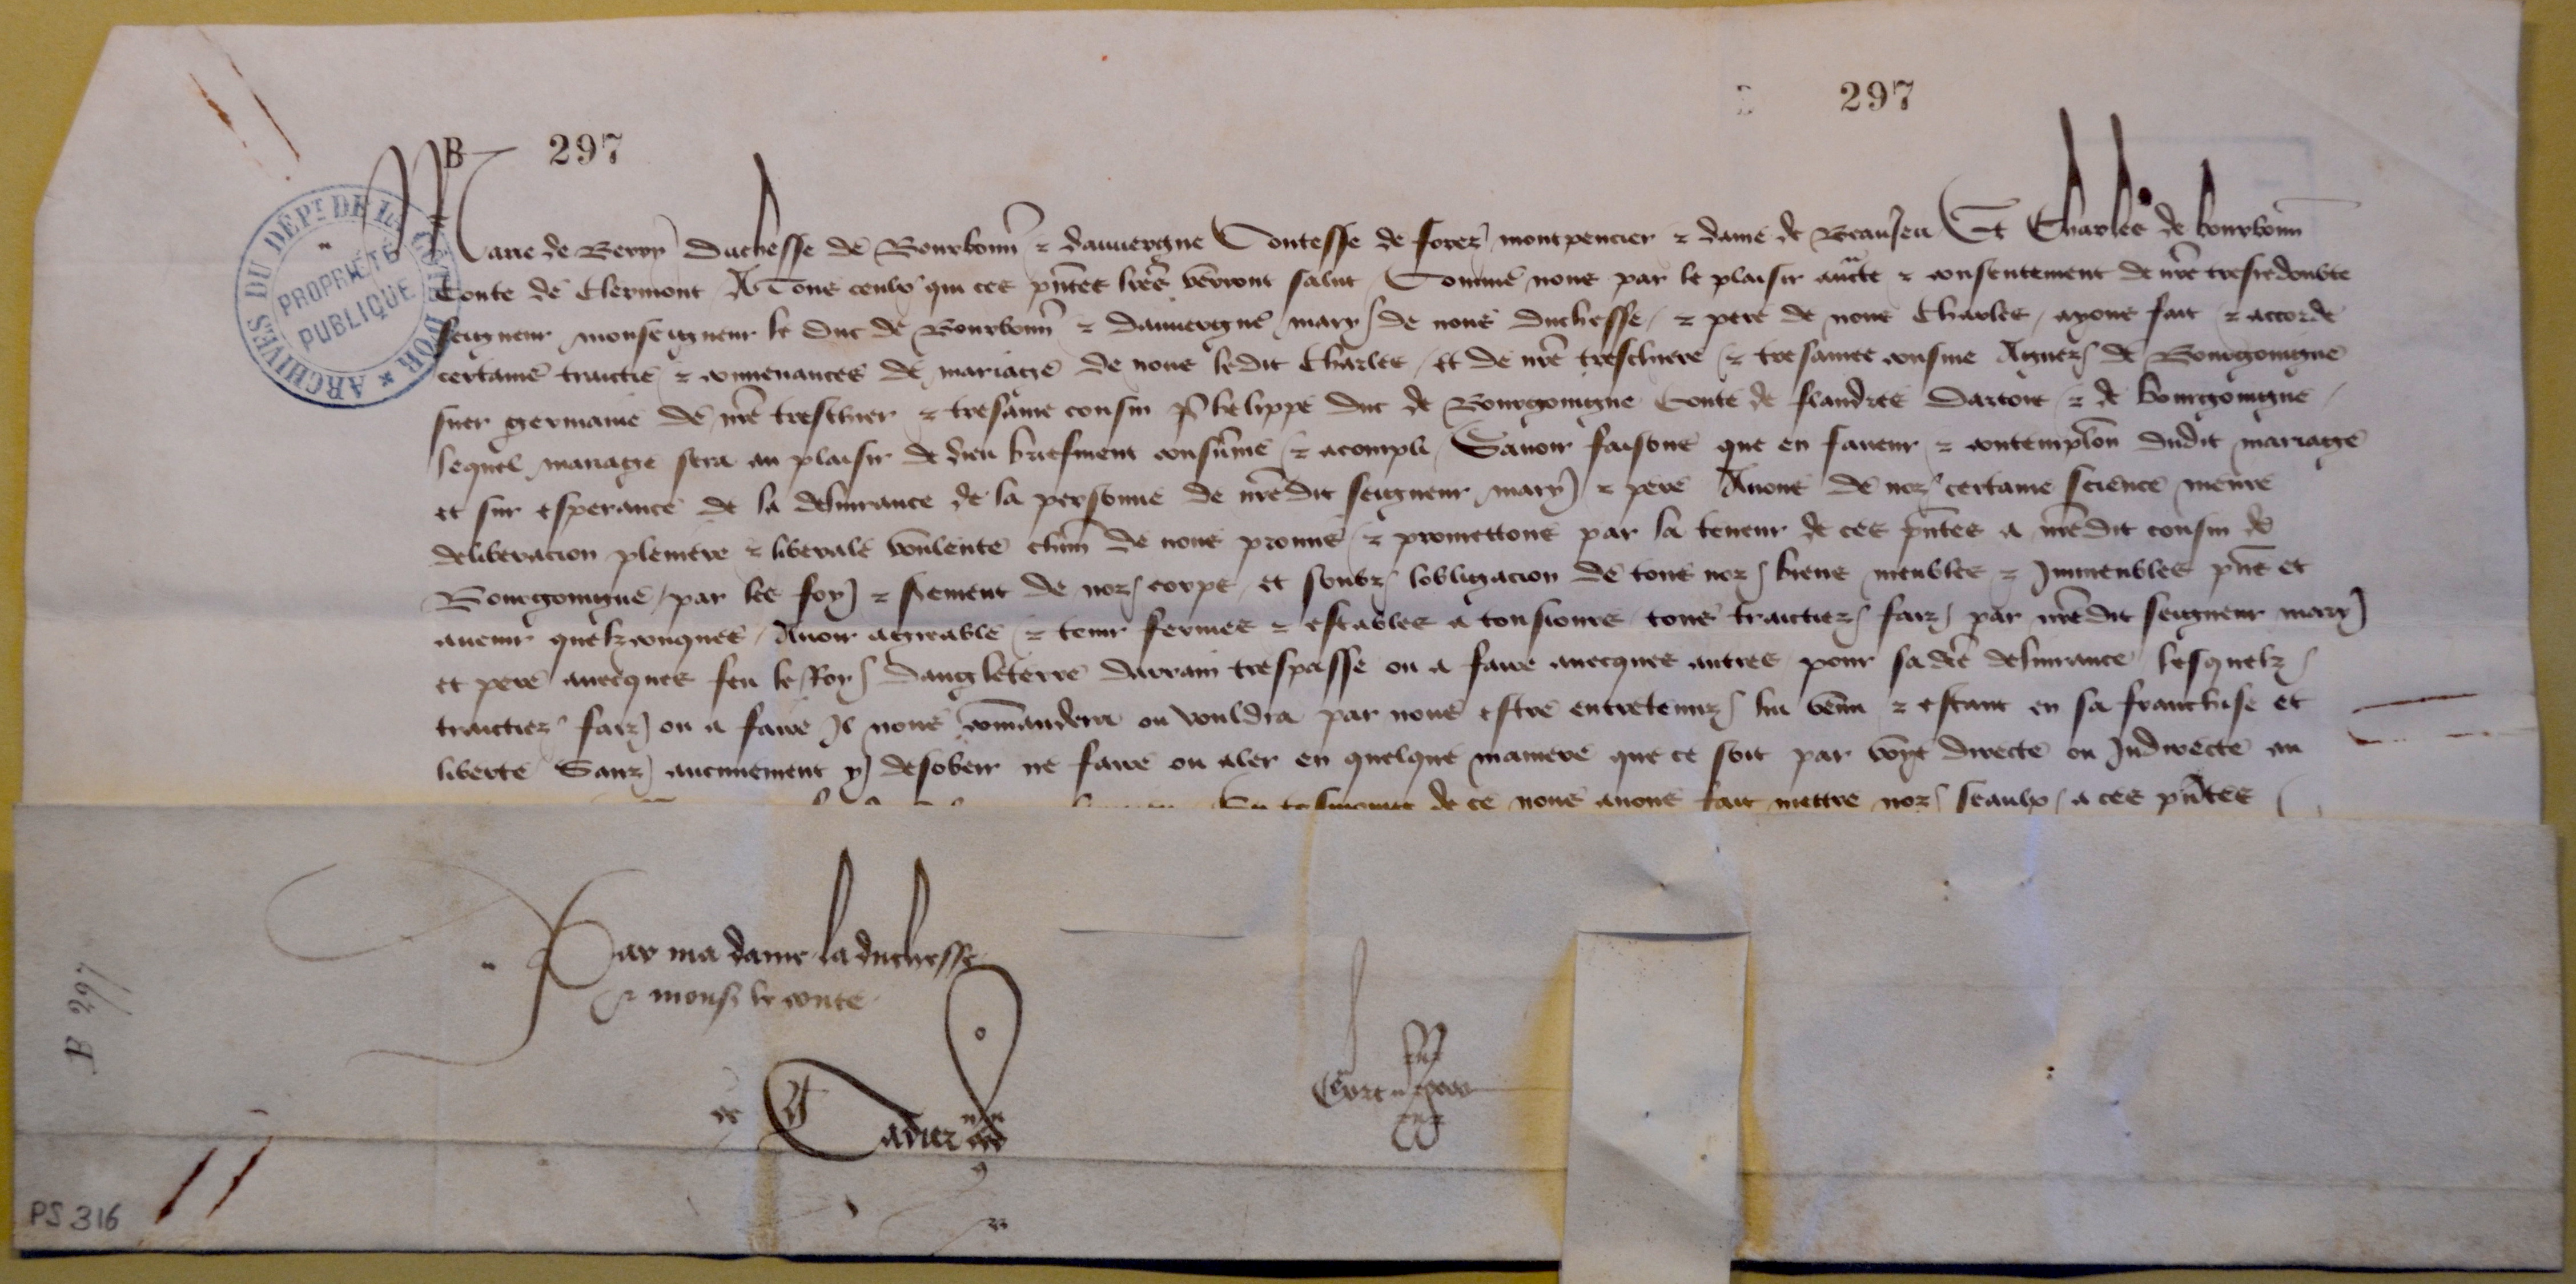 297
B 297
ARCHIVES DU DÉPT. DE LA CÔTE D'OR
PROPRIÉTÉ PUBLIQUE
Marie de Berry Duchesse de Bourbonn̄ & dauuergne Contesse de forez montpencier & dame de Beaujeu Et Charles de bourbonn̄
Conte de Clermont A Tous ceulx qui ces pn̄tes lr̄es verront salut Comme nous par le plaisir auct̄e & consentement de nr̄e tresredoubte
seigneur monseigneur le duc de Bourbonn̄ & dauuergne mary de nous duchesse / & pere de nous Charles / ayons fait & accorde
certaine traictie & conuenances de mariage de nous ledit Charles / et de nr̄e treschiere & tresamee cousine Agnez de Bourgoingne
suer germaine de nr̄e treschier & tresame cousin phelippe duc de Bourgoingne Conte de flandres Dartois & de bourgoingne /
lequel mariage sera au plaisir de dieu briefment consūme & acompli / Sauoir faisons que en faueur & contemplōn dudit mariage
et sur esperance de la deliurance de la personne de nr̄edit seigneur mary & pere Auons de noz certaine science meure
deliberacion pleniere & liberale voulente chūn de nous promis & promettons par la teneur de ces pn̄tes a nr̄edit cousin de
Bourgoingne / par les foy & serement de noz corps et soubz lobligacion de tous noz biens meubles & Inmeubles pn̄s et
auenir quelzconques / Auoir agreable & tenir fermes & estables a tousiours tous traictiez faiz par nr̄edit seigneur mary
et pere auecques feu le Roy dangleterre darrain trespasse ou a faire auecques autres pour sa dc̄e deliurance lesquelz
traictiez faiz ou a faire Il nous com̄andera ou vouldra par nous estre entretenuz lui venu & estant en sa franchise et
liberte Sanz aucunement y desobeir ne faire ou aler en quelque maniere que ce soit par voye directe ou Indirecte au
En tesmoing de ce nous auons fait mettre noz seaulx a ces pn̄tes
Par ma dame la duchesse
& mons̄ le conte
B 297
PS 316